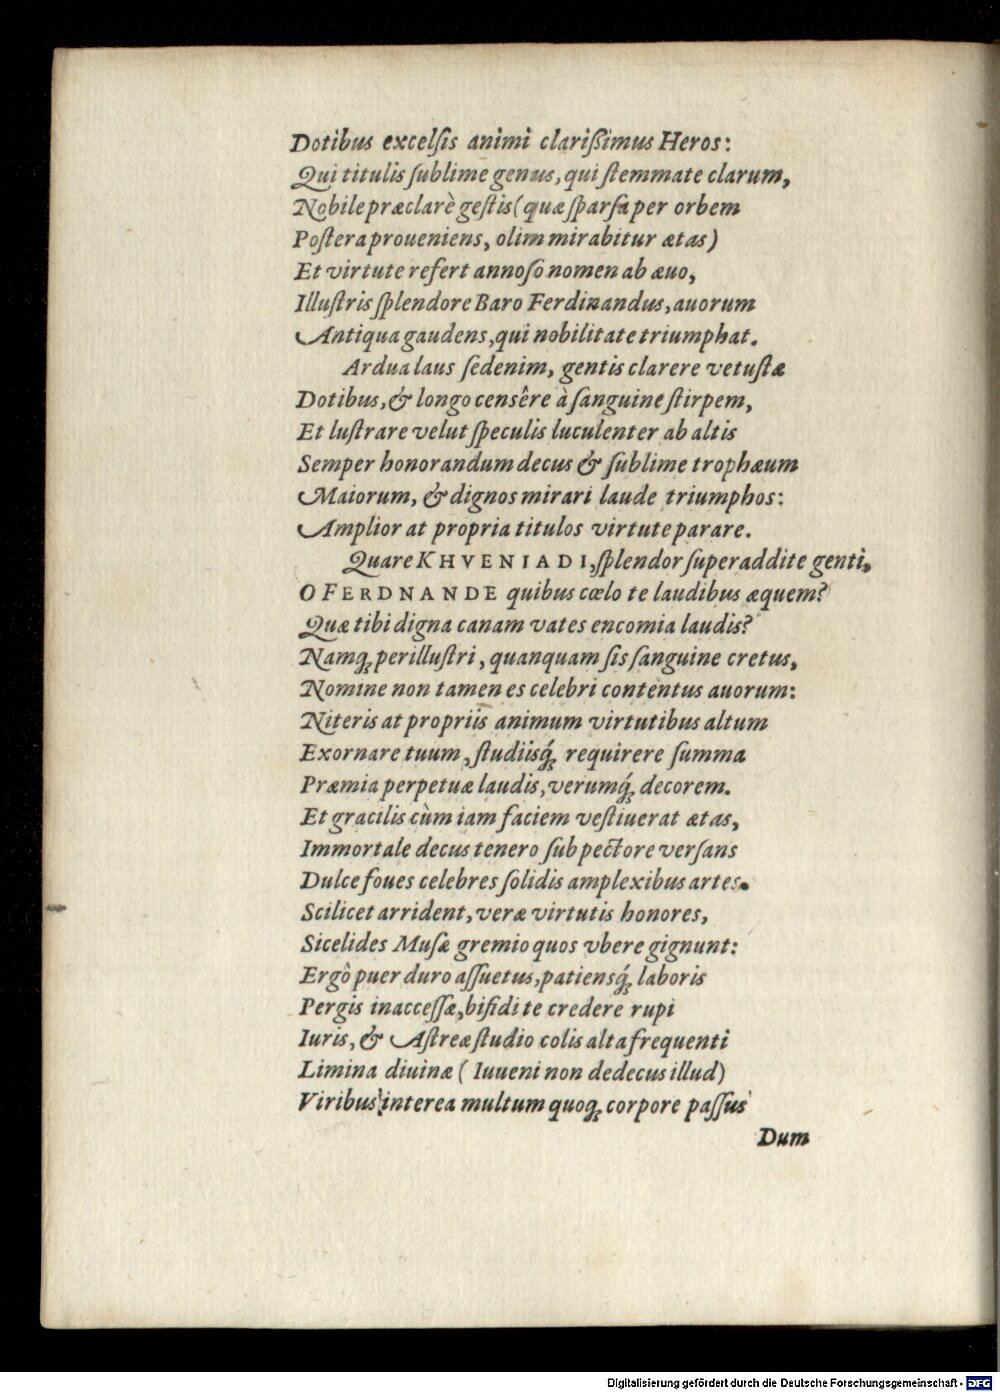 Dotibus excelſis animi clariſsimus Heros:
Qui titulis ſublime genus, qui ſtemmate clarum,
Nobile præclarè geſtis (quæ ſparſa per orbem
Poſtera proueniens, olim mirabitur ætas)
Et virtute refert annoſo nomen ab æuo,
Illuſtris ſplendore Baro Ferdinandus, auorum
Antiqua gaudens, qui nobilitate triumphat.
Ardua laus ſedenim, gentis clarere vetuſtæ
Dotibus, & longo censêre à ſanguine ſtirpem,
Et luſtrare velut ſpeculis luculenter ab altis
Semper honorandum decus & ſublime trophæum
Maiorum, & dignos mirari laude triumphos:
Amplior at propria titulos virtute parare.
Quare KHVENIADI, ſplendor ſuperaddite genti,
O FERDNANDE quibus cœlo te laudibus æquem?
Quæ tibi digna canam vates encomia laudis?
Namq; perilluſtri, quanquam ſis ſanguine cretus,
Nomine non tamen es celebri contentus auorum:
Niteris at propriis animum virtutibus altum
Exornare tuum, ſtudiisq́; requirere ſumma
Præmia perpetuæ laudis, verumq́; decorem.
Et gracilis cùm iam faciem veſtiuerat ætas,
Immortale decus tenero ſub pectore verſans
Dulce foues celebres ſolidis amplexibus artes.
Scilicet arrident, veræ virtutis honores,
Sicelides Muſæ gremio quos vbere gignunt:
Ergò puer duro aſſuetus, patiensq́; laboris
Pergis inacceſſæ, bifidi te credere rupi
Iuris, & Aſtreæ ſtudio colis alta frequenti
Limina diuinæ ( Iuueni non dedecus illud)
Viribus interea multum quoq; corpore paſſus
Dum
Digitalisierung gefördert durch die Deutsche Forschungsgemeinschaft - DFG